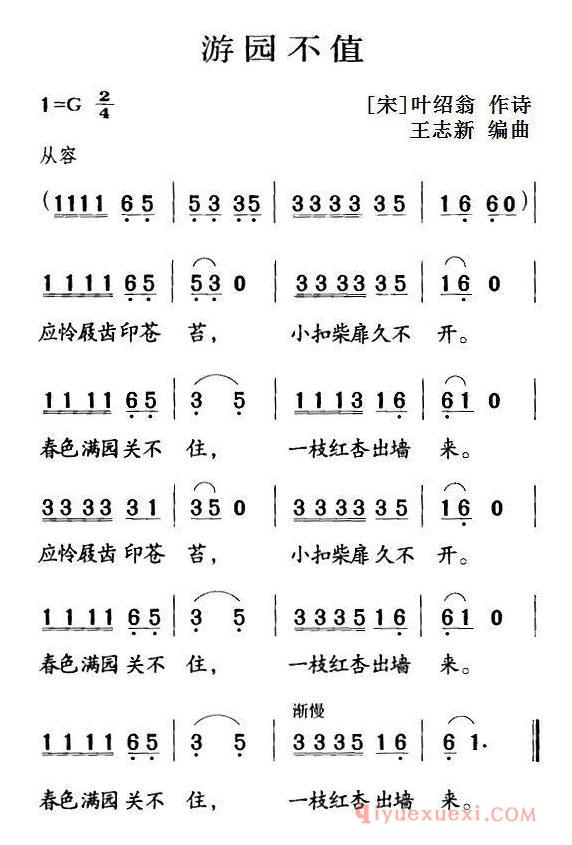 游园不值
1=G 2/4
[宋]叶绍翁 作诗
王志新 编曲
从容
(1111 65 | 53 35 | 3333 35 | 16 60)|
1111 65 | 53 0 | 3333 35 | 16 0 |
应怜屐齿印苍 苔， 小扣柴扉久不 开。
1111 65 | 3 5 | 1113 16 | 61 0 |
春色满园关不 住， 一枝红杏出墙 来。
3333 31 | 35 0 | 3333 35 | 16 0 |
应怜屐齿印苍 苔， 小扣柴扉久不 开。
1111 65 | 3 5 | 3335 16 | 61 0 |
春色满园关不 住， 一枝红杏出墙 来。
渐慢
1111 65 | 3 5 | 3335 16 | 6 1. ‖
春色满园关不 住， 一枝红杏出墙 来。
qiyuexuexi.com